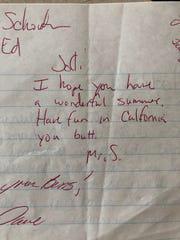 Ed
I hope you have
a wonderful summer.
Have fun in California
you butt.
Mr. S.
Dave